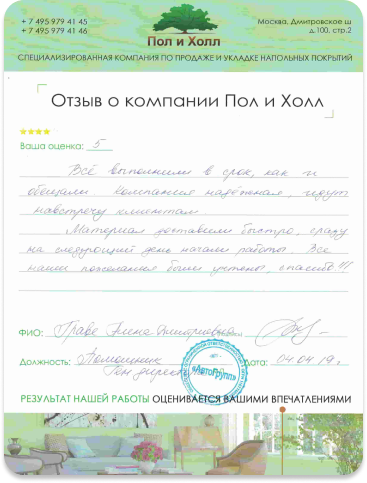 + 7 495 979 41 45
+ 7 495 979 41 46
Пол и Холл
Москва, Дмитровское ш
д.100, стр.2
СПЕЦИАЛИЗИРОВАННАЯ КОМПАНИЯ ПО ПРОДАЖЕ И УКЛАДКЕ НАПОЛЬНЫХ ПОКРЫТИЙ
Отзыв о компании Пол и Холл
Ваша оценка: 5
Всё выполнили в срок, как и
обещали Компания надёжная, идут
навстречу клиентам
Материал доставили быстро, сразу
на следующий день начали работы. Все
наши пожелания были учтены, спасибо!!!
ФИО: Граве Елена Дмитриевна
Должность: Помощник
Ген директора
«АвтоГрупп»
Дата: 04.04.19г.
РЕЗУЛЬТАТ НАШЕЙ РАБОТЫ ОЦЕНИВАЕТСЯ ВАШИМИ ВПЕЧАТЛЕНИЯМИ